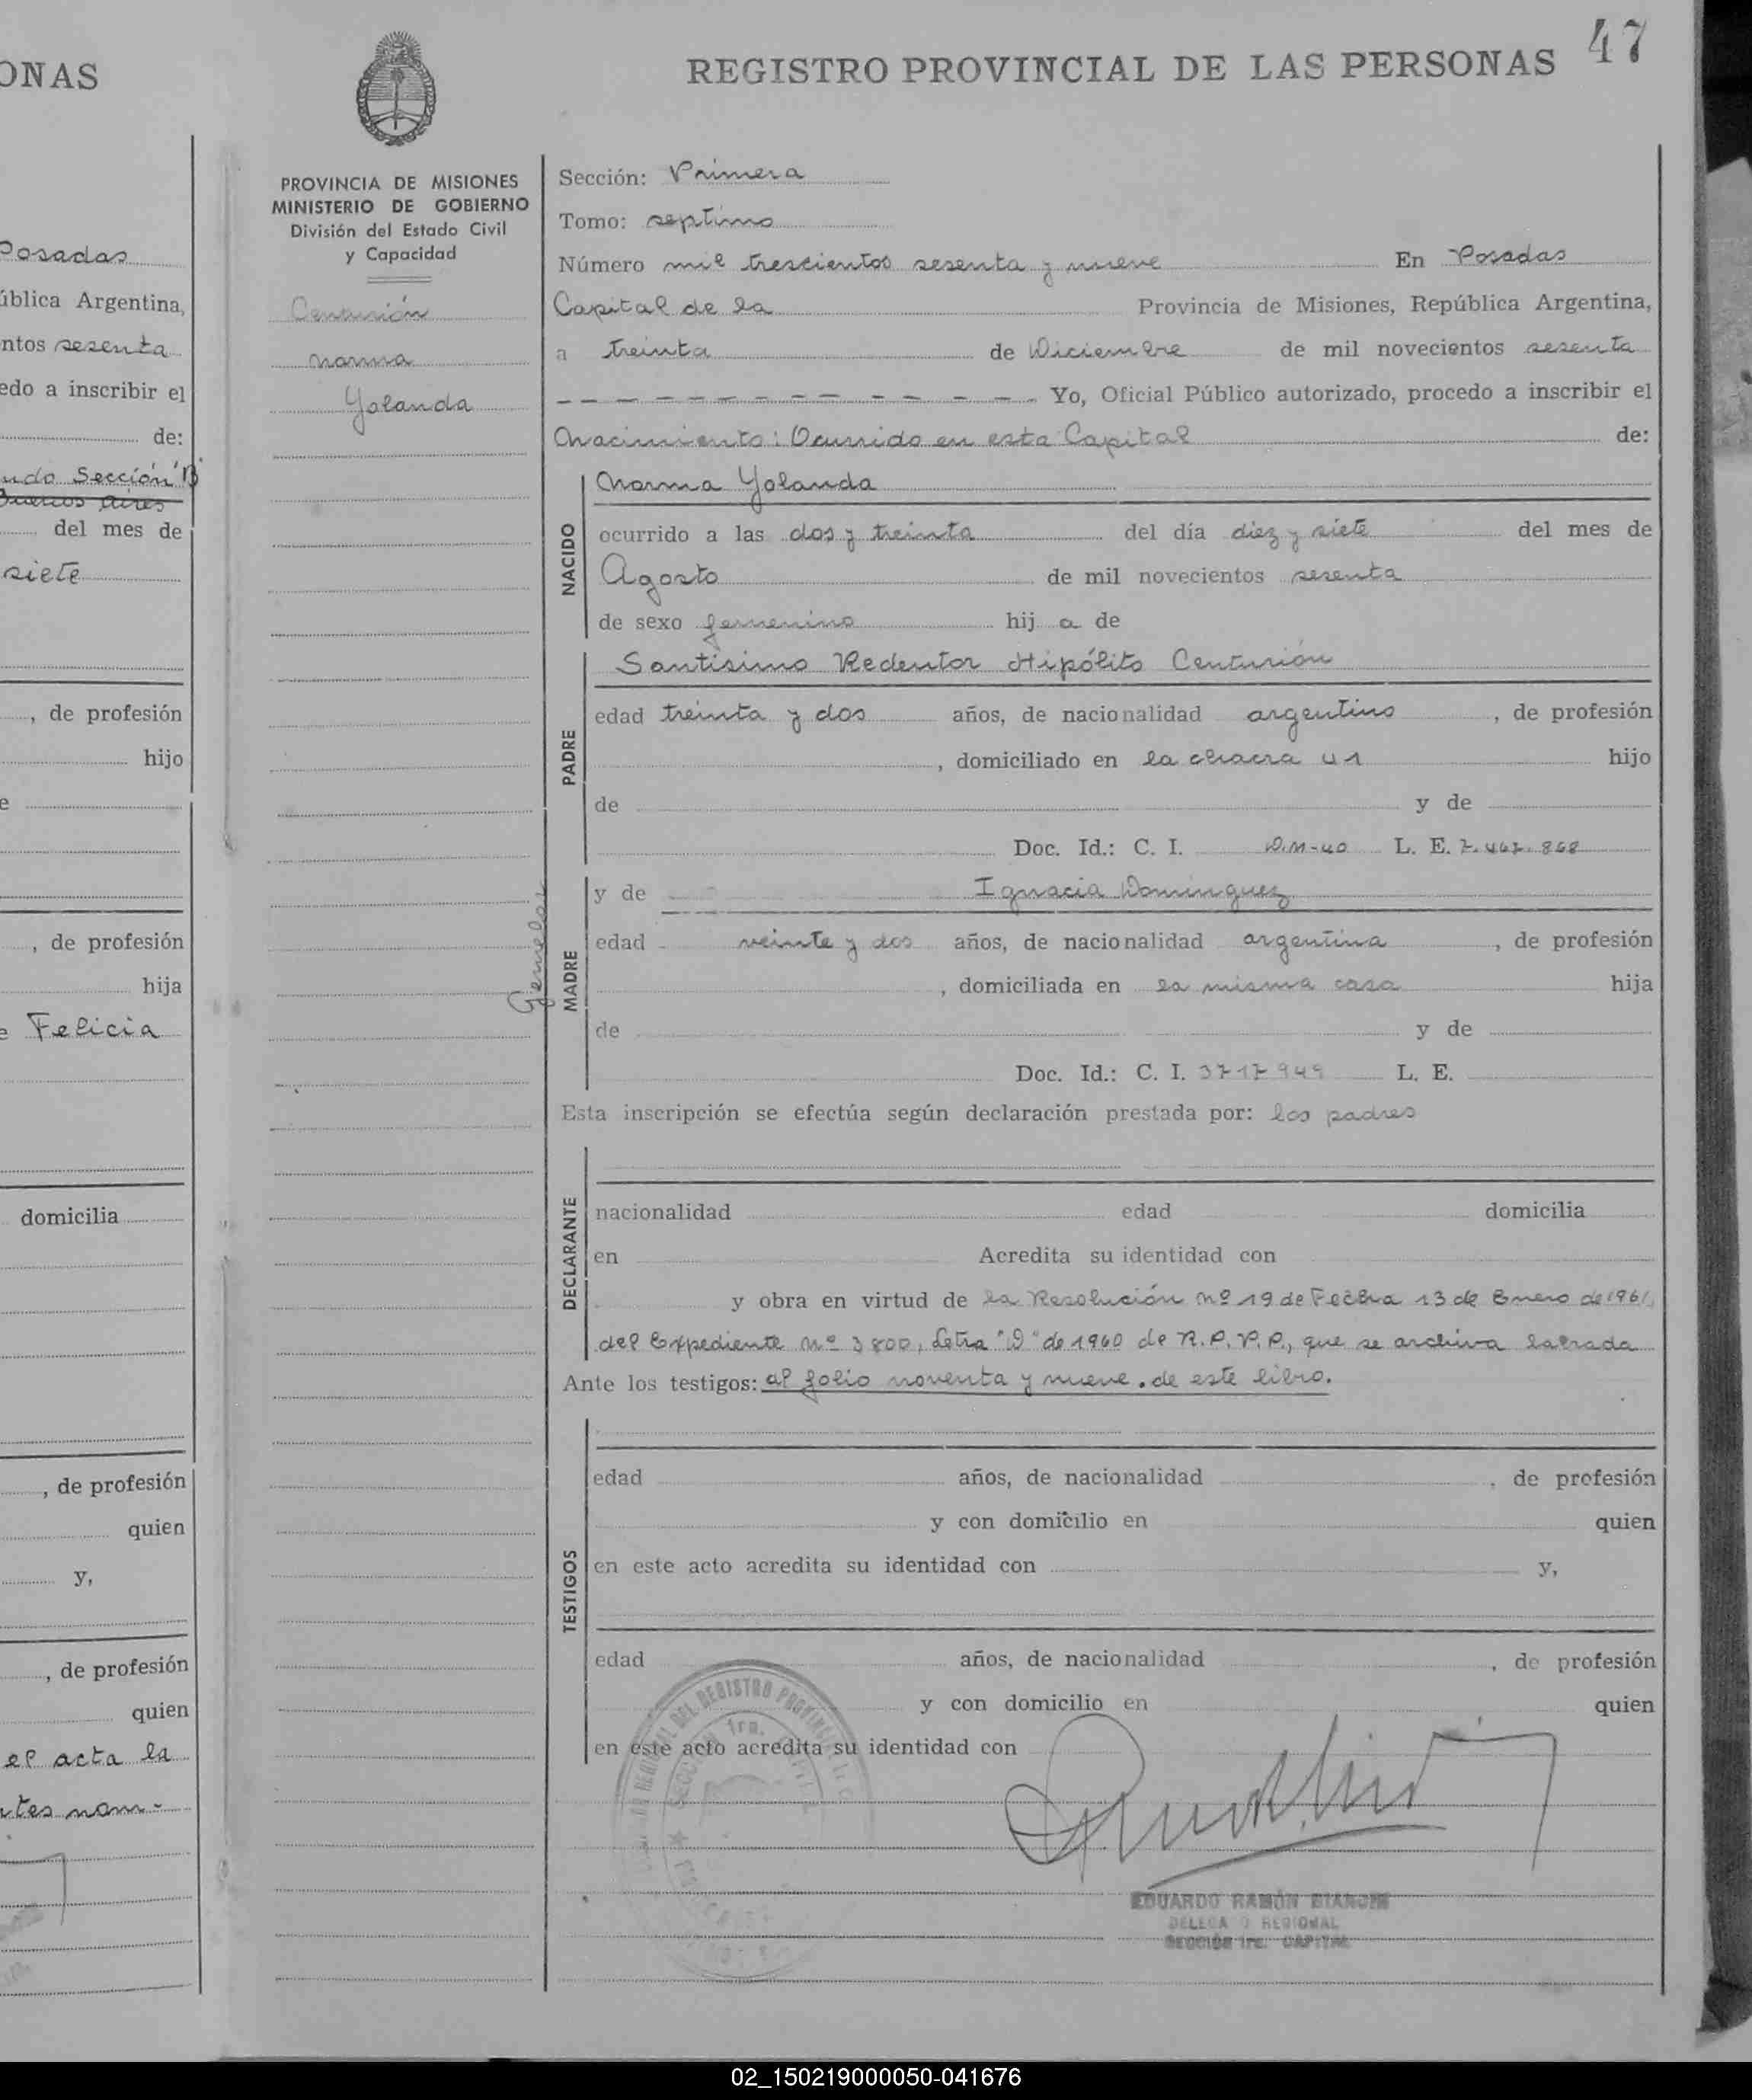 ONAS
Posadas
ública Argentina,
ntos sesenta
edo a inscribir el
de:
ndo Sección "B"
Buenos Aires
del mes de
siete
, de profesión
hijo
e
, de profesión
hija
e Felicia
domicilia
, de profesión
quien
y,
, de profesión
quien
el acta la
ntes nom-
PROVINCIA DE MISIONES
MINISTERIO DE GOBIERNO
División del Estado Civil
y Capacidad
Centurión
Norma
Yolanda
Gemelar
REGISTRO PROVINCIAL DE LAS PERSONAS 47
Sección: Primera
Tomo: septimo
Número mil trescientos sesenta y nueve En Posadas
Capital de la Provincia de Misiones, República Argentina,
a treinta de Diciembre de mil novecientos sesenta
Yo, Oficial Público autorizado, procedo a inscribir el
Nacimiento: Ocurrido en esta Capital de:
NACIDO
Norma Yolanda
ocurrido a las dos y treinta del día diez y siete del mes de
Agosto de mil novecientos sesenta
de sexo femenino hij a de
PADRE
Santisimo Redentor Hipólito Centurión
edad treinta y dos años, de nacionalidad argentino , de profesión
, domiciliado en la chacra 41 hijo
de y de
Doc. Id.: C. I. D.M-40 L. E. 7.467.868
MADRE
y de Ignacia Dominguez
edad veinte y dos años, de nacionalidad argentina , de profesión
, domiciliada en la misma casa hija
de y de
Doc. Id.: C. I. 3717949 L. E.
Esta inscripción se efectúa según declaración prestada por: los padres
DECLARANTE
nacionalidad edad domicilia
en Acredita su identidad con
y obra en virtud de la Resolución Nº 19 de Fecha 13 de Enero de 1961,
del Expediente Nº 3800, Letra "D" de 1960 de R.P.P.P., que se archiva labrada
Ante los testigos: al folio noventa y nueve. de este libro.
TESTIGOS
edad años, de nacionalidad , de profesión
y con domicilio en quien
en este acto acredita su identidad con y,
edad años, de nacionalidad , de profesión
y con domicilio en quien
en este acto acredita su identidad con
EDUARDO RAMÓN BIANCHI
DELEGADO REGIONAL
SECCIÓN 1ra. CAPITAL
02_150219000050-041676